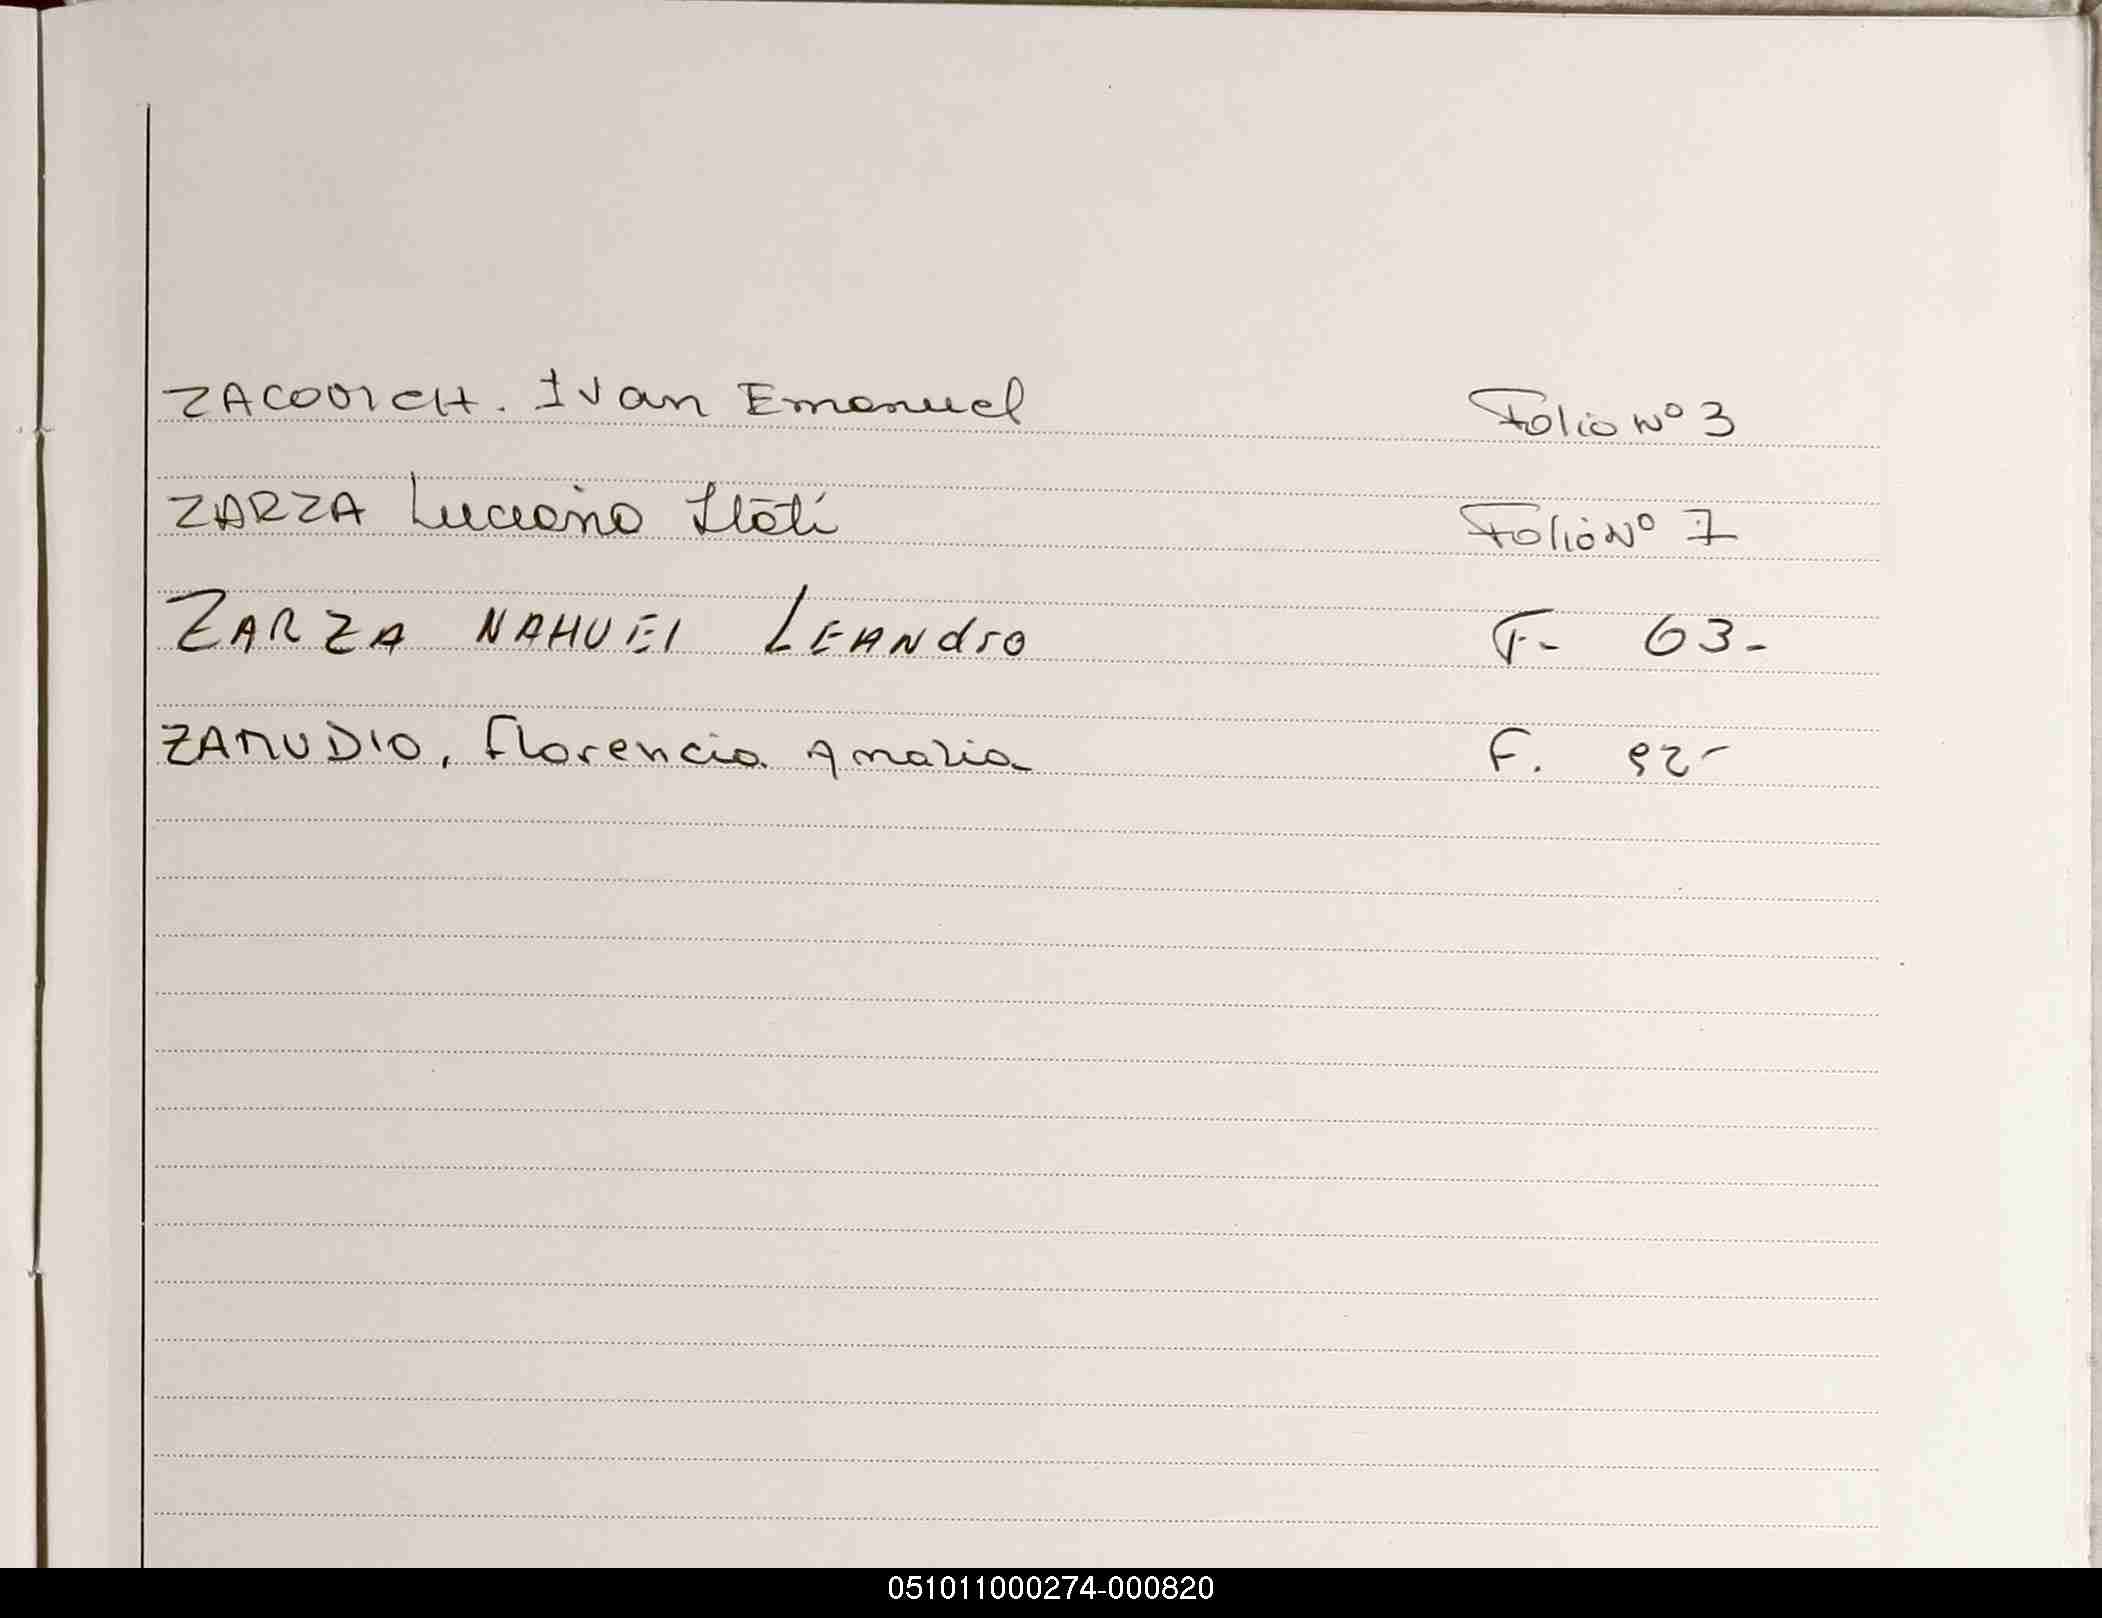 ZACOVICH. Ivan Emanuel Folio Nº 3
ZARZA Luciano Itatí Folio Nº 7
ZARZA NAHUEl LEANdro F- 63-
ZAMUDIO, Florencia Amalia F. 92-
051011000274-000820